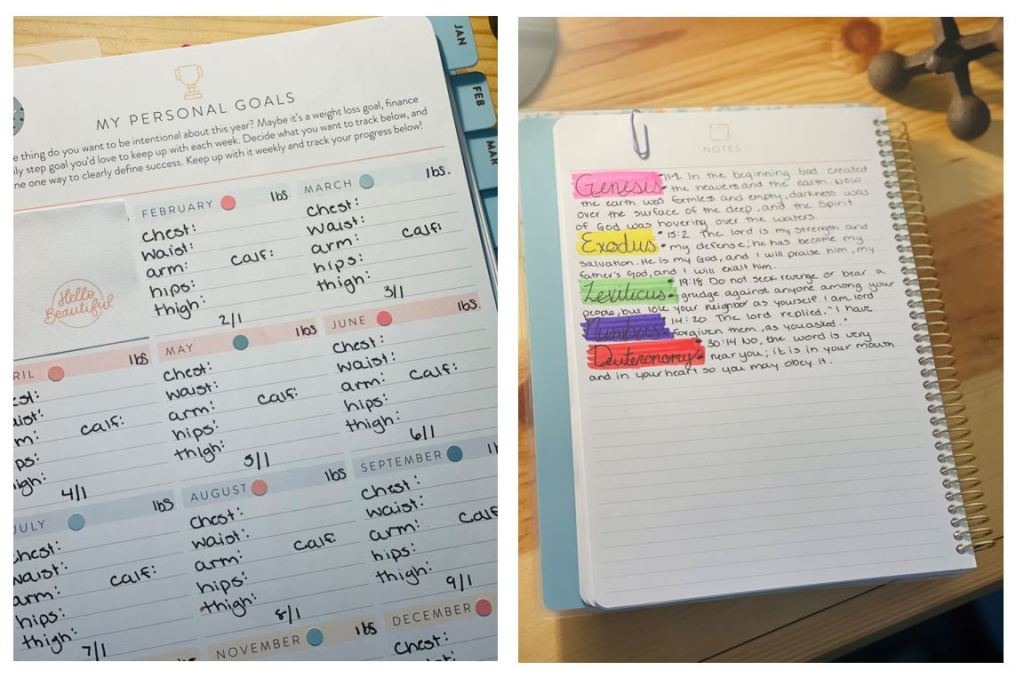 JAN
FEB
MAR
MY PERSONAL GOALS
e thing do you want to be intentional about this year? Maybe it's a weight loss goal, finance
ily step goal you'd love to keep up with each week. Decide what you want to track below, and
ne one way to clearly define success. Keep up with it weekly and track your progress below!
Hello
Beautiful
FEBRUARY lbs
chest:
waist:
arm: calf:
hips:
thigh:
2/1
MARCH lbs.
chest:
waist:
arm: calf:
hips:
thigh:
3/1
RIL lbs
est:
aist:
m: calf:
ps:
igh:
4/1
MAY lbs
chest:
waist:
arm: calf:
hips:
thigh:
5/1
JUNE lbs.
chest:
waist:
arm: calf:
hips:
thigh:
6/1
JULY lbs
chest:
waist:
arm: calf:
hips:
thigh:
7/1
AUGUST lbs
chest:
waist:
arm: calf:
hips:
thigh:
8/1
SEPTEMBER lb
chest:
waist:
arm: calf
hips:
thigh:
9/1
NOVEMBER lbs
DECEMBER
chest:
NOTES
Genesis • 1:1 In the beginning God created
• the heavens and the earth. Now
the earth was formless and empty, darkness was
over the surface of the deep, and the Spirit
of God was hovering over the waters.
Exodus • 15:2 The lord is my strength and
• my defense; he has become my
salvation. He is my God, and I will praise him, my
father's God, and I will exalt him.
Leviticus • 19:18 Do not seek revenge or bear a
• grudge against anyone among your
people, but love your neighbor as yourself. I am lord
Numbers • 14:20 The lord replied, "I have
forgiven them, as you asked."
Deuteronomy • 30:14 NO, the word is very
near you; it is in your mouth
and in your heart so you may obey it.